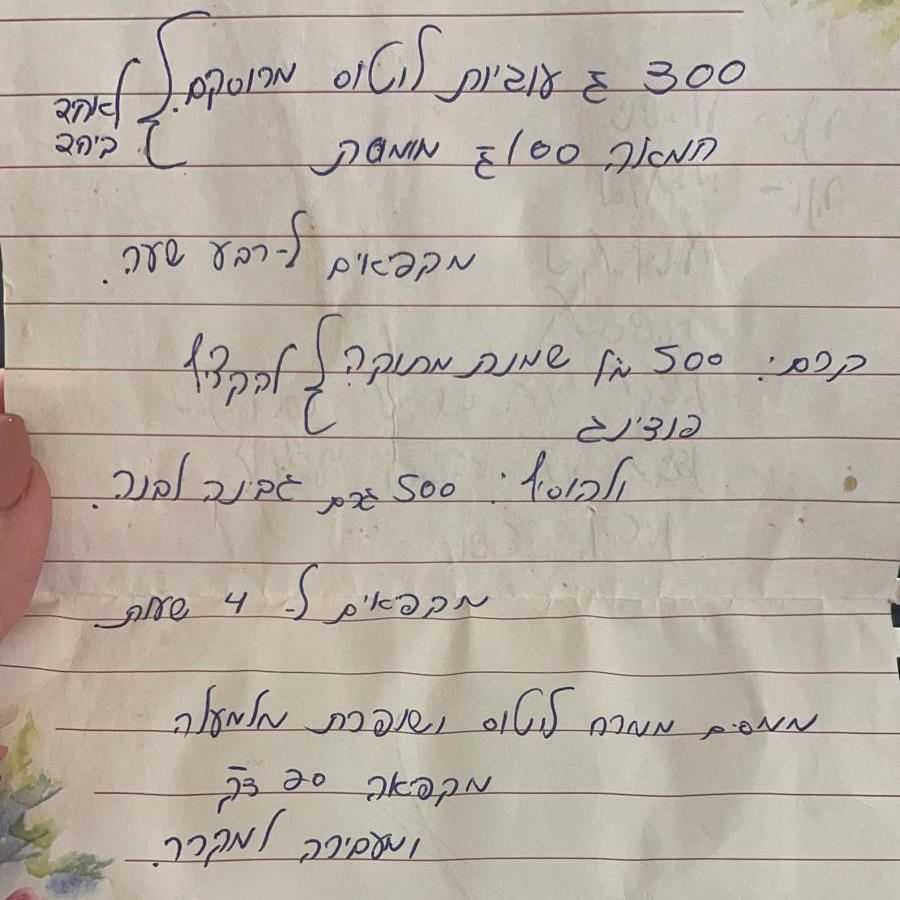 300 ג עוגיות לוטוס מרוסקים. לאחד
חמאה 100 ג מומסת ביחד
מקפאים ל-רבע שעה.
קרם: 500 מל שמנת מתוקה להקציף
פודינג
ולהוסיף: 500 גרם גבינה לבנה.
מקפאים ל- 4 שעות
ממסים ממרח לוטוס ושופכת מלמעלה
מקפאה 20 דק
ומעבירה למקרר.